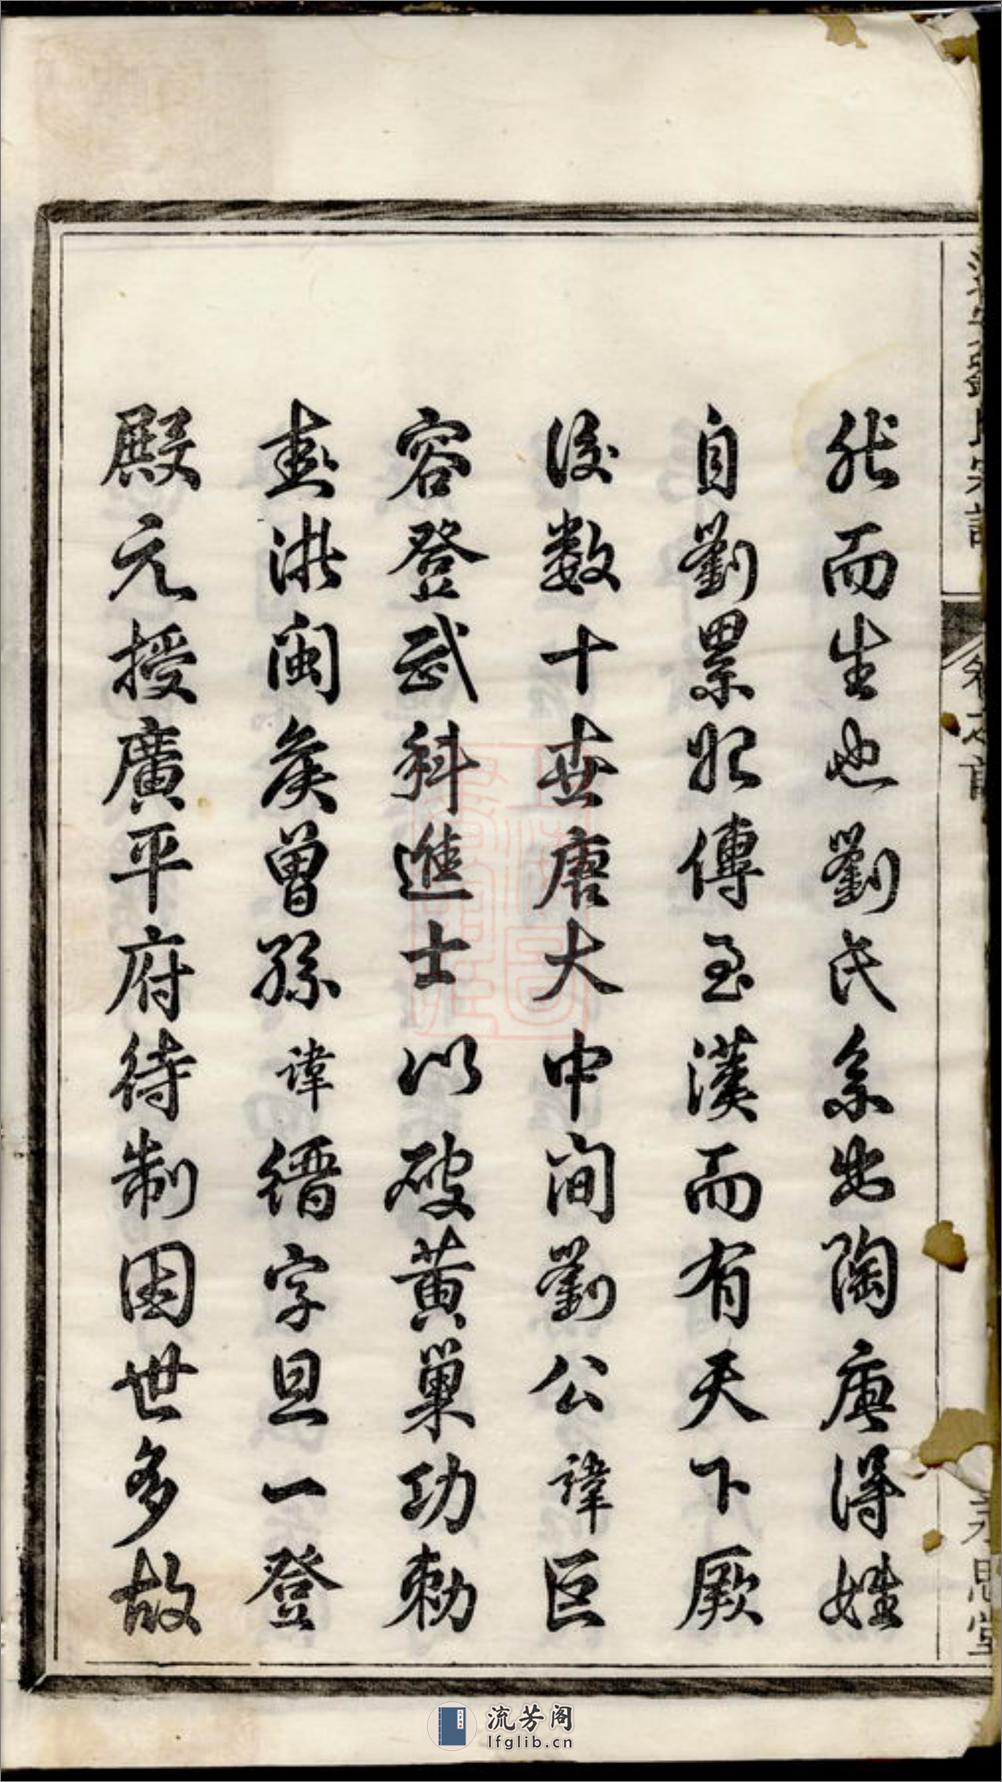 然而生也劉氏系出陶唐得姓
自劉累始傳至漢而有天下厥
後数十世唐大中間劉公諱巨
容登武科進士以破黃巢功勅
封洪閩侯曾孫諱縉字旦一登
殿元授廣平府待制因世多故
劉氏宗譜
卷之首
思堂
流芳阁
lfglib.cn